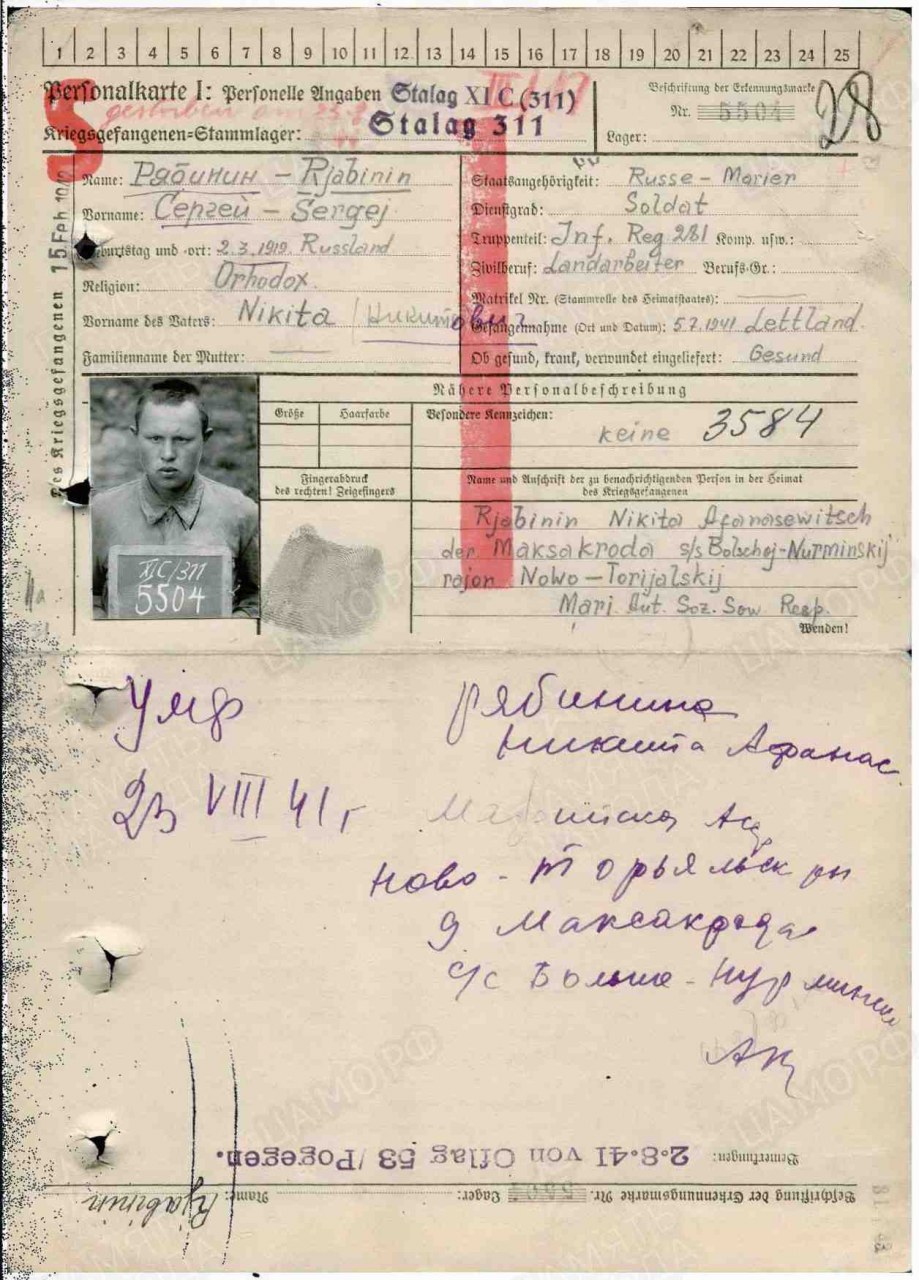 1 2 3 4 5 6 7 8 9 10 11 12 13 14 15 16 17 18 19 20 21 22 23 24 25
Personalkarte I: Personelle Angaben
Stalag XI C (311)
gestorben am
Kriegsgefangenen-Stammlager: Stalag 311
Beschriftung der Erkennungsmarke
Nr. 5504
Lager:
28
S
Des Kriegsgefangenen
Name: Рябинин – Rjabinin
Vorname: Сергей – Sergej
Geburtstag und -ort: 2.3.1919. Russland
Religion: Orthodox.
Vorname des Vaters: Nikita
Familienname der Mutter: —
Staatsangehörigkeit: Russe – Marier
Dienstgrad: Soldat
Truppenteil: Inf. Reg 281 Komp. usw.:
Zivilberuf: Landarbeiter Berufs-Gr.:
Matrikel Nr. (Stammrolle des Heimatstaates): —
Gefangennahme (Ort und Datum): 5.7.1941 Lettland.
Ob gesund, krank, verwundet eingeliefert: Gesund
Nähere Personalbeschreibung
Größe Haarfarbe
Besondere Kennzeichen:
keine 3584
Fingerabdruck
des rechten! Zeigefingers
XIC/311
5504
Name und Anschrift der zu benachrichtigenden Person in der Heimat
des Kriegsgefangenen
Rjabinin Nikita Afanasewitsch
der Maksakroda s/s Bolschej-Nurminskij
rajon Nowo-Torijalskij
Mari Aut. Soz. Sow Resp.
Wenden!
Умер
23 VIII 41 г
Рябинина
Никита Афанас
Ново-Торьяльск рн
д Максакрода
с/с Больше-Нурминск
Bemerkungen: 2.8.41 von Oflag 53/Pogegen.
Beschriftung der Erkennungsmarke Nr. 5504 Lager:
Name: Rjabinin
ЦАМО РФ
ПАМЯТЬ